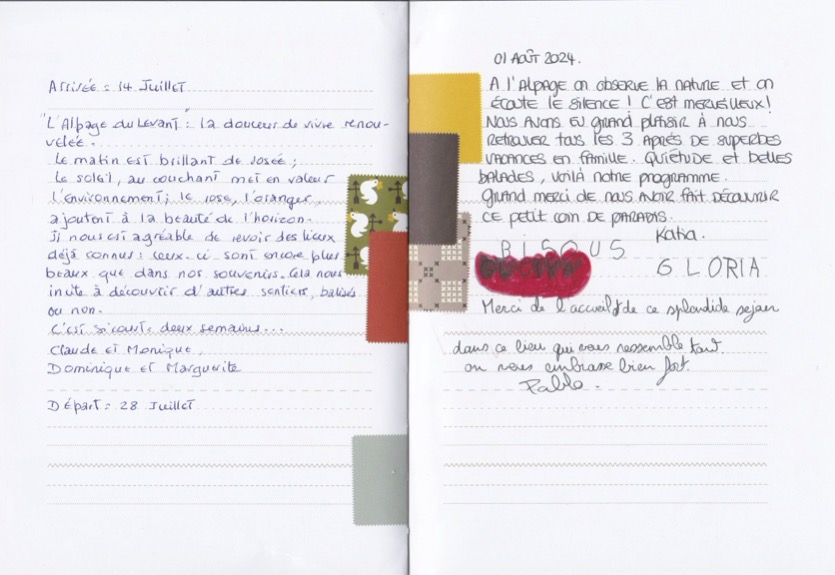 Arrivée : 14 Juillet
"L'Alpage du Levant" : la douceur de vivre renou-
velée.
Le matin est brillant de rosée ;
Le soleil, au couchant met en valeur
l'environnement ; le rose, l'oranger
ajoutent à la beauté de l'horizon.
Il nous est agréable de revoir des lieux
déjà connus : ceux-ci sont encore plus
beaux que dans nos souvenirs. Cela nous
invite à découvrir d'autres sentiers, balisés
ou non.
C'est si court : deux semaines...
Claude et Monique,
Dominique et Marguerite
Départ : 28 Juillet
01 AOÛT 2024.
A l'Alpage on observe la nature et on
écoute le silence ! C'est merveilleux !
Nous avons eu grand plaisir à nous
retrouver tous les 3 après de superbes
vacances en famille. Quiétude et belles
balades, voilà notre programme.
Grand merci de nous avoir fait découvrir
ce petit coin de paradis.
Katia.
BISOUS
GLORIA
Merci de l'accueil, de ce splendide sejour
dans ce lieu qui vous ressemble tant
on vous embrasse bien fort.
Pablo.